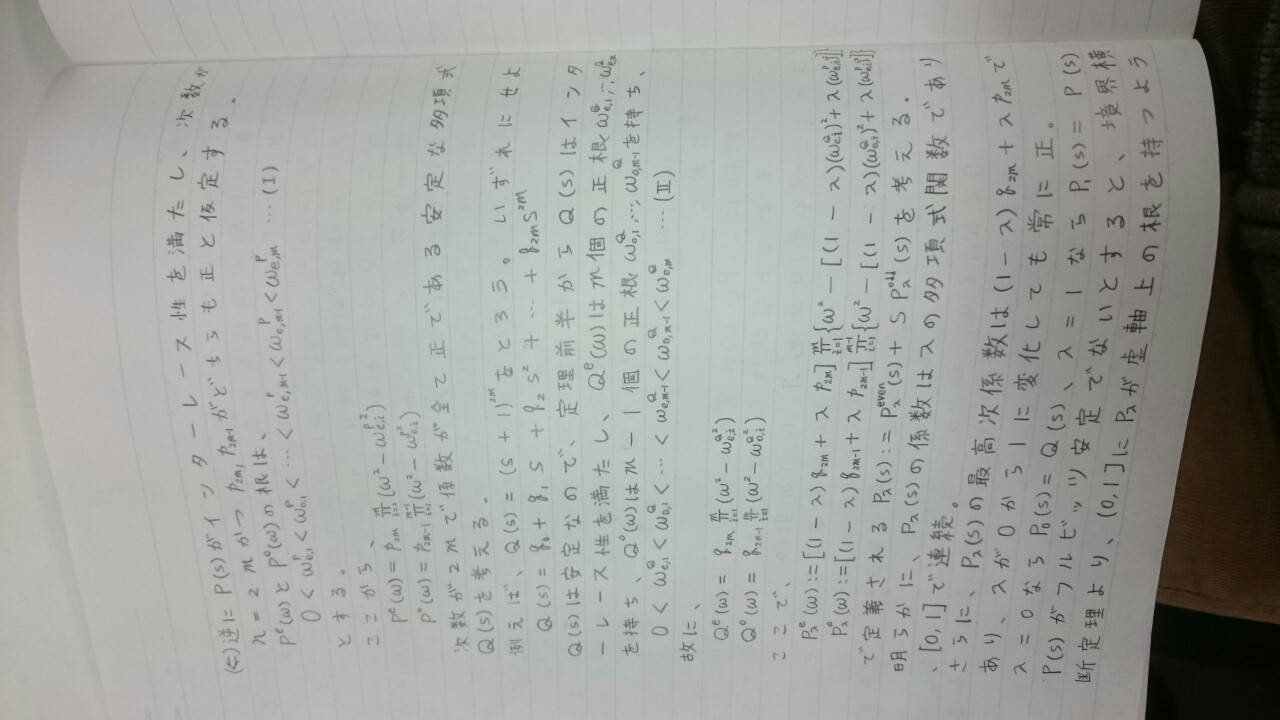 (⇐)逆にP(s)がインターレース性を満たし、次数が
n = 2mかつ p₂ₘ, p₂ₘ₋₁がどちらも正と仮定する.
Pᵉ(ω)とP°(ω)の根は、
0 < ω^P_{e,1} < ω^P_{o,1} < … < ω^P_{e,m-1} < ω^P_{o,m-1} < ω^P_{e,m} …(I)
とする.
ここから、
Pᵉ(ω) = p_{2m} ∏_{i=1}^{m} (ω² − ω^{P²}_{e,i})
P°(ω) = p_{2m-1} ∏_{i=1}^{m-1} (ω² − ω^{P²}_{o,i})
次数が2mで係数が全て正である安定な多項式
Q(s)を考える.
例えば、Q(s) = (s + 1)^{2m}をとろう。いずれにせよ
Q(s) = q₀ + q₁ s + q₂ s² + … + q_{2m} s^{2m}
Q(s)は安定なので、定理前半からQ(s)はインタ
ーレース性を満たし、Qᵉ(ω)はm個の正根ω^Q_{e,1},…,ω^Q_{e,m}
を持ち、Q°(ω)はm−1個の正根ω^Q_{o,1},…,ω^Q_{o,m-1}を持ち、
0 < ω^Q_{e,1} < ω^Q_{o,1} < … < ω^Q_{e,m-1} < ω^Q_{o,m-1} < ω^Q_{e,m} …(II)
故に、
Qᵉ(ω) = q_{2m} ∏_{i=1}^{m} (ω² − ω^{Q²}_{e,i})
Q°(ω) = q_{2m-1} ∏_{i=1}^{m} (ω² − ω^{Q²}_{o,i})
ここで、
P^e_λ(ω) := [(1 − λ) q_{2m} + λ p_{2m}] ∏_{i=1}^{m} {ω² − [(1 − λ)(ω^Q_{e,i})² + λ(ω^P_{e,i})²]}
P^o_λ(ω) := [(1 − λ) q_{2m-1} + λ p_{2m-1}] ∏_{i=1}^{m-1} {ω² − [(1 − λ)(ω^Q_{o,i})² + λ(ω^P_{o,i})²]}
で定義されるP_λ(s) := P^{even}_λ(s) + S P^{odd}_λ(s)を考える.
明らかに、P_λ(s)の係数はλの多項式関数であり
、[0,1]で連続。
さらに、P_λ(s)の最高次係数は(1−λ) q_{2m} + λ p_{2m}で
あり、λが0から1に変化しても常に正。
λ = 0ならP₀(s) = Q(s)、λ = 1ならP₁(s) = P(s)
P(s)がフルビッツ安定でないとすると、境界横
断定理より、(0,1]にP_λが虚軸上の根を持つよう